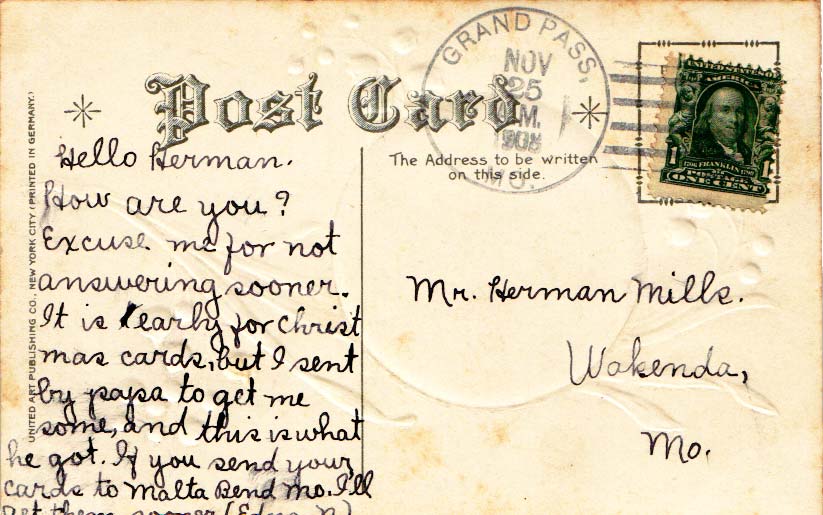 GRAND PASS,
NOV
25
M.
1908
MO.
Post Card
The Address to be written
on this side.
UNITED ART PUBLISHING CO., NEW YORK CITY (PRINTED IN GERMANY.)
AMERICA
1706 FRANKLIN 1790
POSTAGE
1 1
ONE CENT
Hello Herman.
How are you?
Excuse me for not
answering sooner.
It is early for Christ
mas cards, but I sent
by papa to get me
some, and this is what
he got. If you send your
cards to Malta Bend Mo. I'll
get them sooner (Edna N)
Mr. Herman Mills.
Wakenda,
Mo.